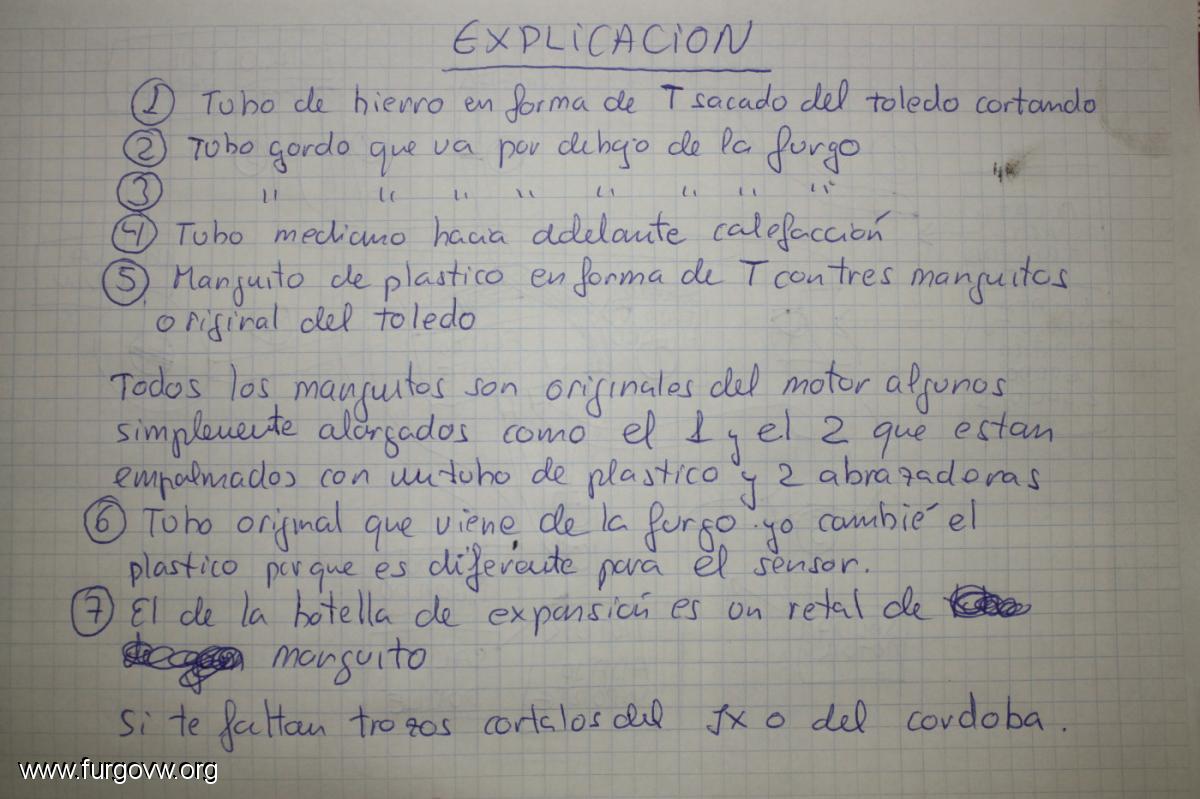 EXPLICACION
1 Tubo de hierro en forma de T sacado del toledo cortando
2 Tubo gordo que va por debajo de la furgo
3 " " " " " " " "
4 Tubo mediano hacia adelante calefacción
5 Manguito de plastico en forma de T con tres manguitos
original del toledo
Todos los manguitos son originales del motor algunos
simplemente alargados como el 1 y el 2 que estan
empalmados con un tubo de plastico y 2 abrazadoras
6 Tubo original que viene de la furgo yo cambié el
plastico porque es diferente para el sensor.
7 El de la botella de expansión es un retal de
manguito
Si te faltan trozos cortalos del JX o del cordoba.
www.furgovw.org